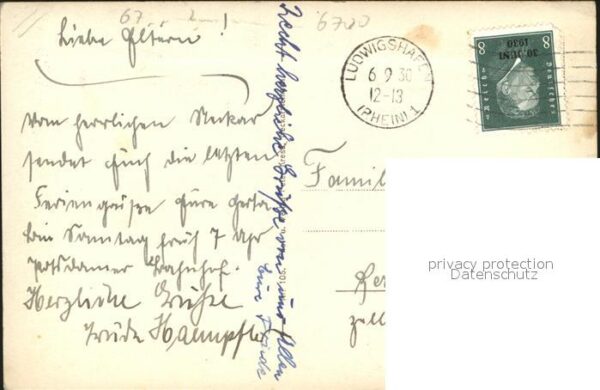 67
6700
Liebe Eltern!
Vom herrlichen Neckar
sendet Euch die letzten
Feriengrüße Eure Gerta.
Bin Sonntag früh 7 Uhr
Potsdamer Bahnhof.
Herzliche Grüße
Trude
Recht herzliche Grüße von uns Allen
Eure Frieda
LUDWIGSHAFEN
6 9 30
12-13
(RHEIN) 1
8 8
30. JUNI
1930
Deutsches Reich
Famil
Ber
privacy protection
Datenschutz